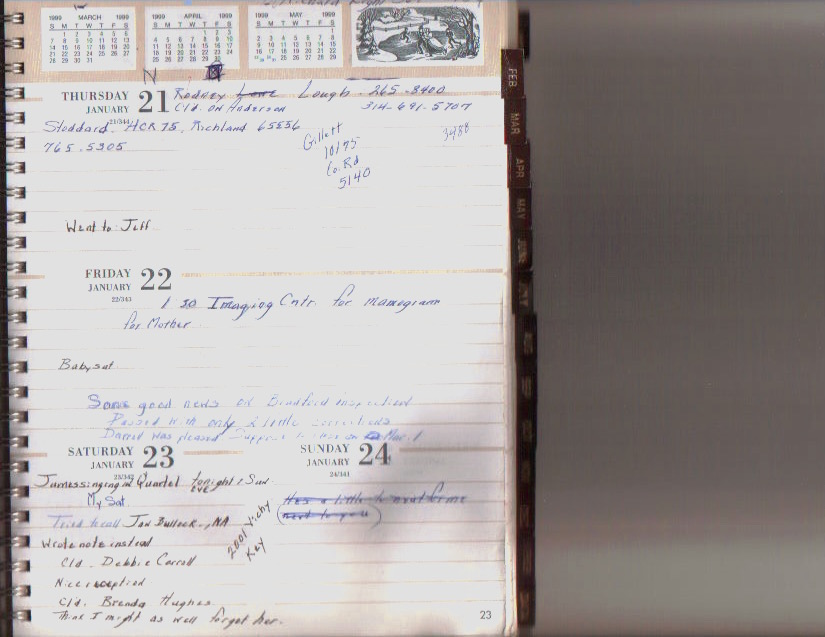 1999 MARCH 1999
S M T W T F S
1 2 3 4 5 6
7 8 9 10 11 12 13
14 15 16 17 18 19 20
21 22 23 24 25 26 27
28 29 30 31
1999 APRIL 1999
S M T W T F S
1 2 3
4 5 6 7 8 9 10
11 12 13 14 15 16 17
18 19 20 21 22 23 24
25 26 27 28 29 30
1999 MAY 1999
S M T W T F S
1
2 3 4 5 6 7 8
9 10 11 12 13 14 15
16 17 18 19 20 21 22
N
THURSDAY
JANUARY 21
21/344
Rodney Lone Lough - 265-8400
Cld. on Anderson 314-691-5707
Stoddard, HCR 75, Richland 65556
765-5305
Gillett
10175
Co. Rd
5140
3488
Went to Jeff
FRIDAY
JANUARY 22
22/343
1:30 Imaging Cntr. for mamogram
for Mother
Babysat
Some good news on Bradford inspection
Passed with only 2 little corrections
Darrel was pleased on Mar. 1
SATURDAY
JANUARY 23
23/342
singing in Quartet tonight & Sun
eve
My Sat.
Tried to call Jan Bullock, NA
Wrote note instead
Cld. Debbie Carroll
Nice reception
Cld. Brenda Hughes
Think I might as well forget her.
2001 Vicky
Key
SUNDAY
JANUARY 24
24/341
a little to next
next to you
23
FEB
MAR
APR
MAY
JUNE
JULY